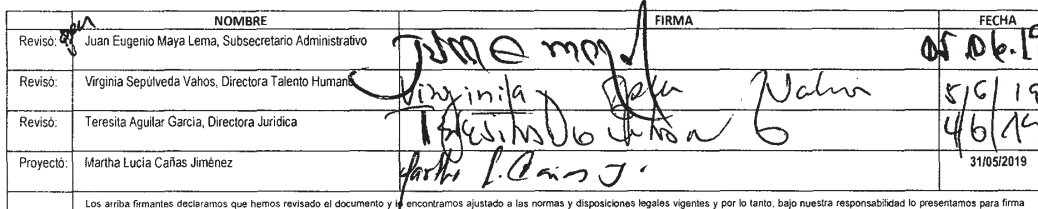 NOMBRE FIRMA FECHA
Revisó: Juan Eugenio Maya Lema, Subsecretario Administrativo 05.06.19
Revisó: Virginia Sepúlveda Vahos, Directora Talento Humano Virginia Vahos 5/6/19
Revisó: Teresita Aguilar García, Directora Jurídica 4/6/19
Proyectó: Martha Lucía Cañas Jiménez Martha L. Cañas J. 31/05/2019
Los arriba firmantes declaramos que hemos revisado el documento y lo encontramos ajustado a las normas y disposiciones legales vigentes y por lo tanto, bajo nuestra responsabilidad lo presentamos para firma